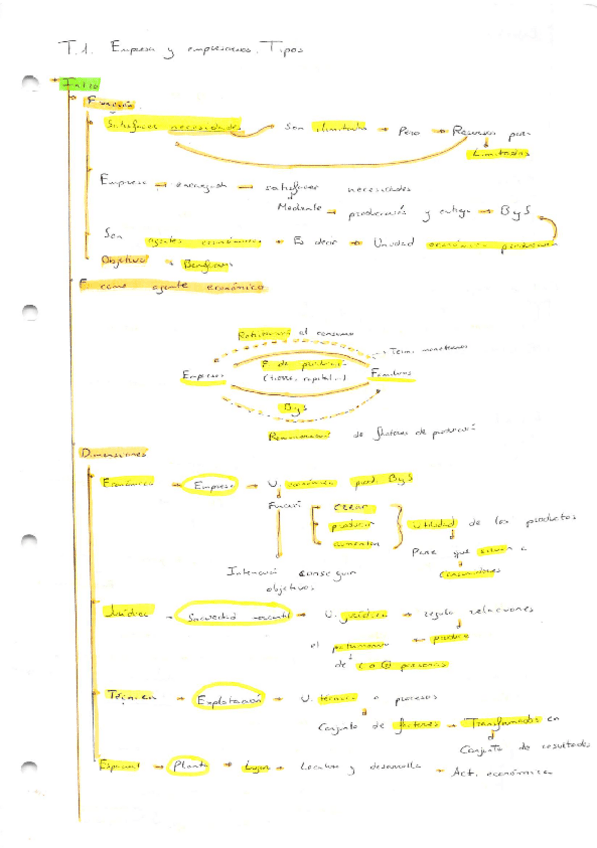 T.1. Empresa y empresarios. Tipos
Intro
Función
Satisfacer necesidades → Son ilimitadas → Pero → Recursos para
Limitados
Empresa → encargada → satisfacer necesidades
Mediante → producción y entrega → ByS
Son agentes económicos → Es decir → Unidad económica producción
Objetivo → Beneficios
E como agente económico
Retribución al consumo
Term. monetarios
F. de producción
Empresas (tierra, capital..) Familias
ByS
Remuneración de factores de producción
Dimensiones
Económica → Empresa → U. económica prod. ByS
Función → crear
→ producir utilidad de los productos
→ aumentar Para que sirvan a
consumidores
Intención conseguir
objetivos
Jurídica → Sociedad mercantil → U. jurídica → regula relaciones
el patrimonio produce
de 1 o ⊕ personas
Técnica → Explotación → U. técnica o procesos
Conjunto de factores → Transformados en
Conjunto de resultados
Espacial → Planta → Lugar → Localiza y desarrolla → Act. económica